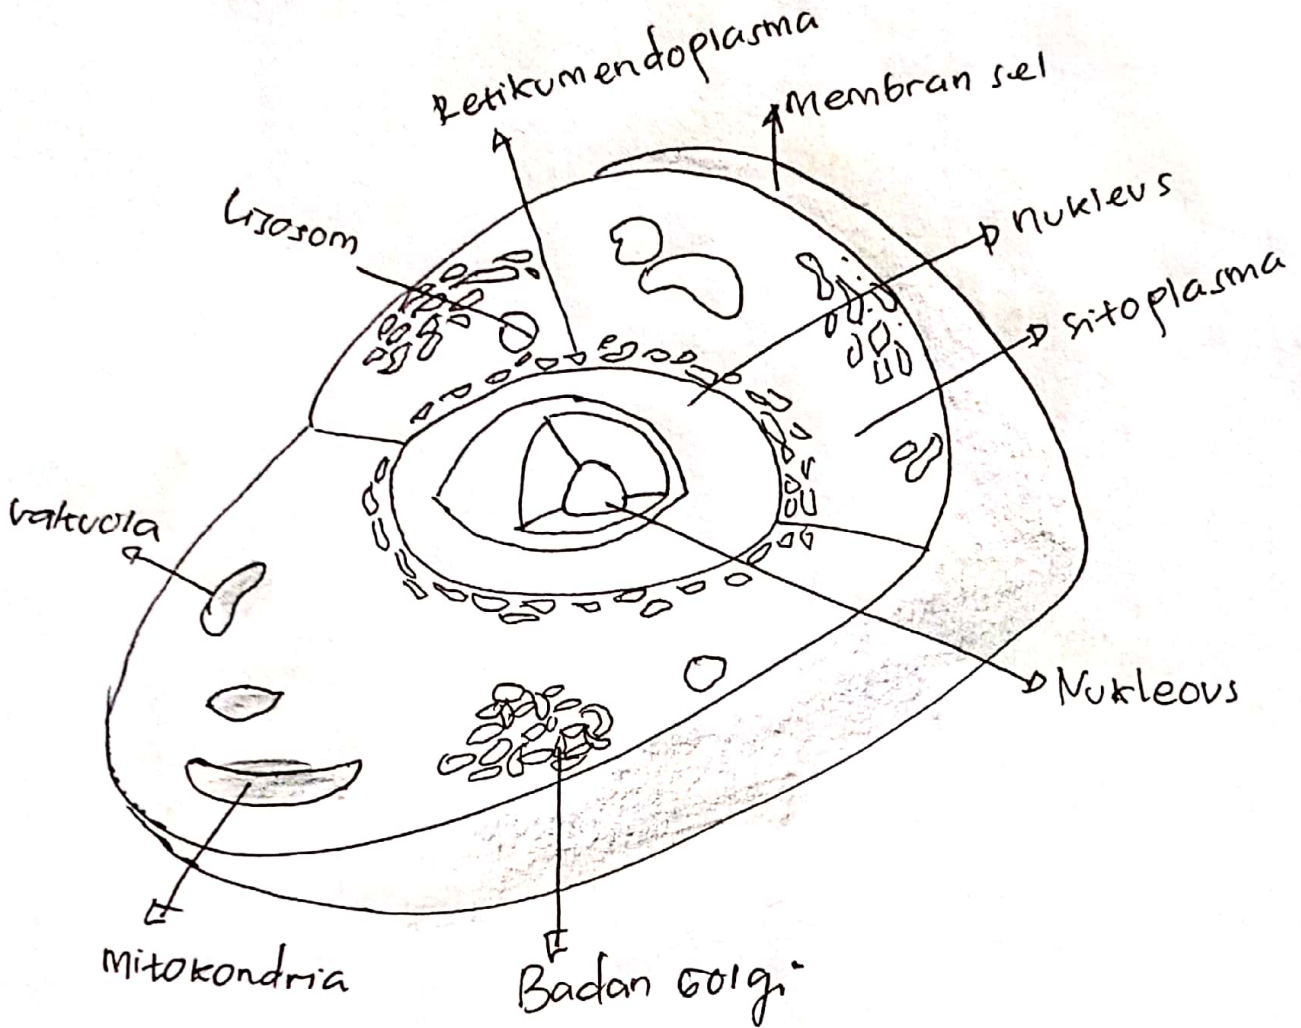 Retikumendoplasma
Membran sel
Lisosom
Nukleus
Sitoplasma
Vakuola
Nukleous
Mitokondria
Badan Golgi